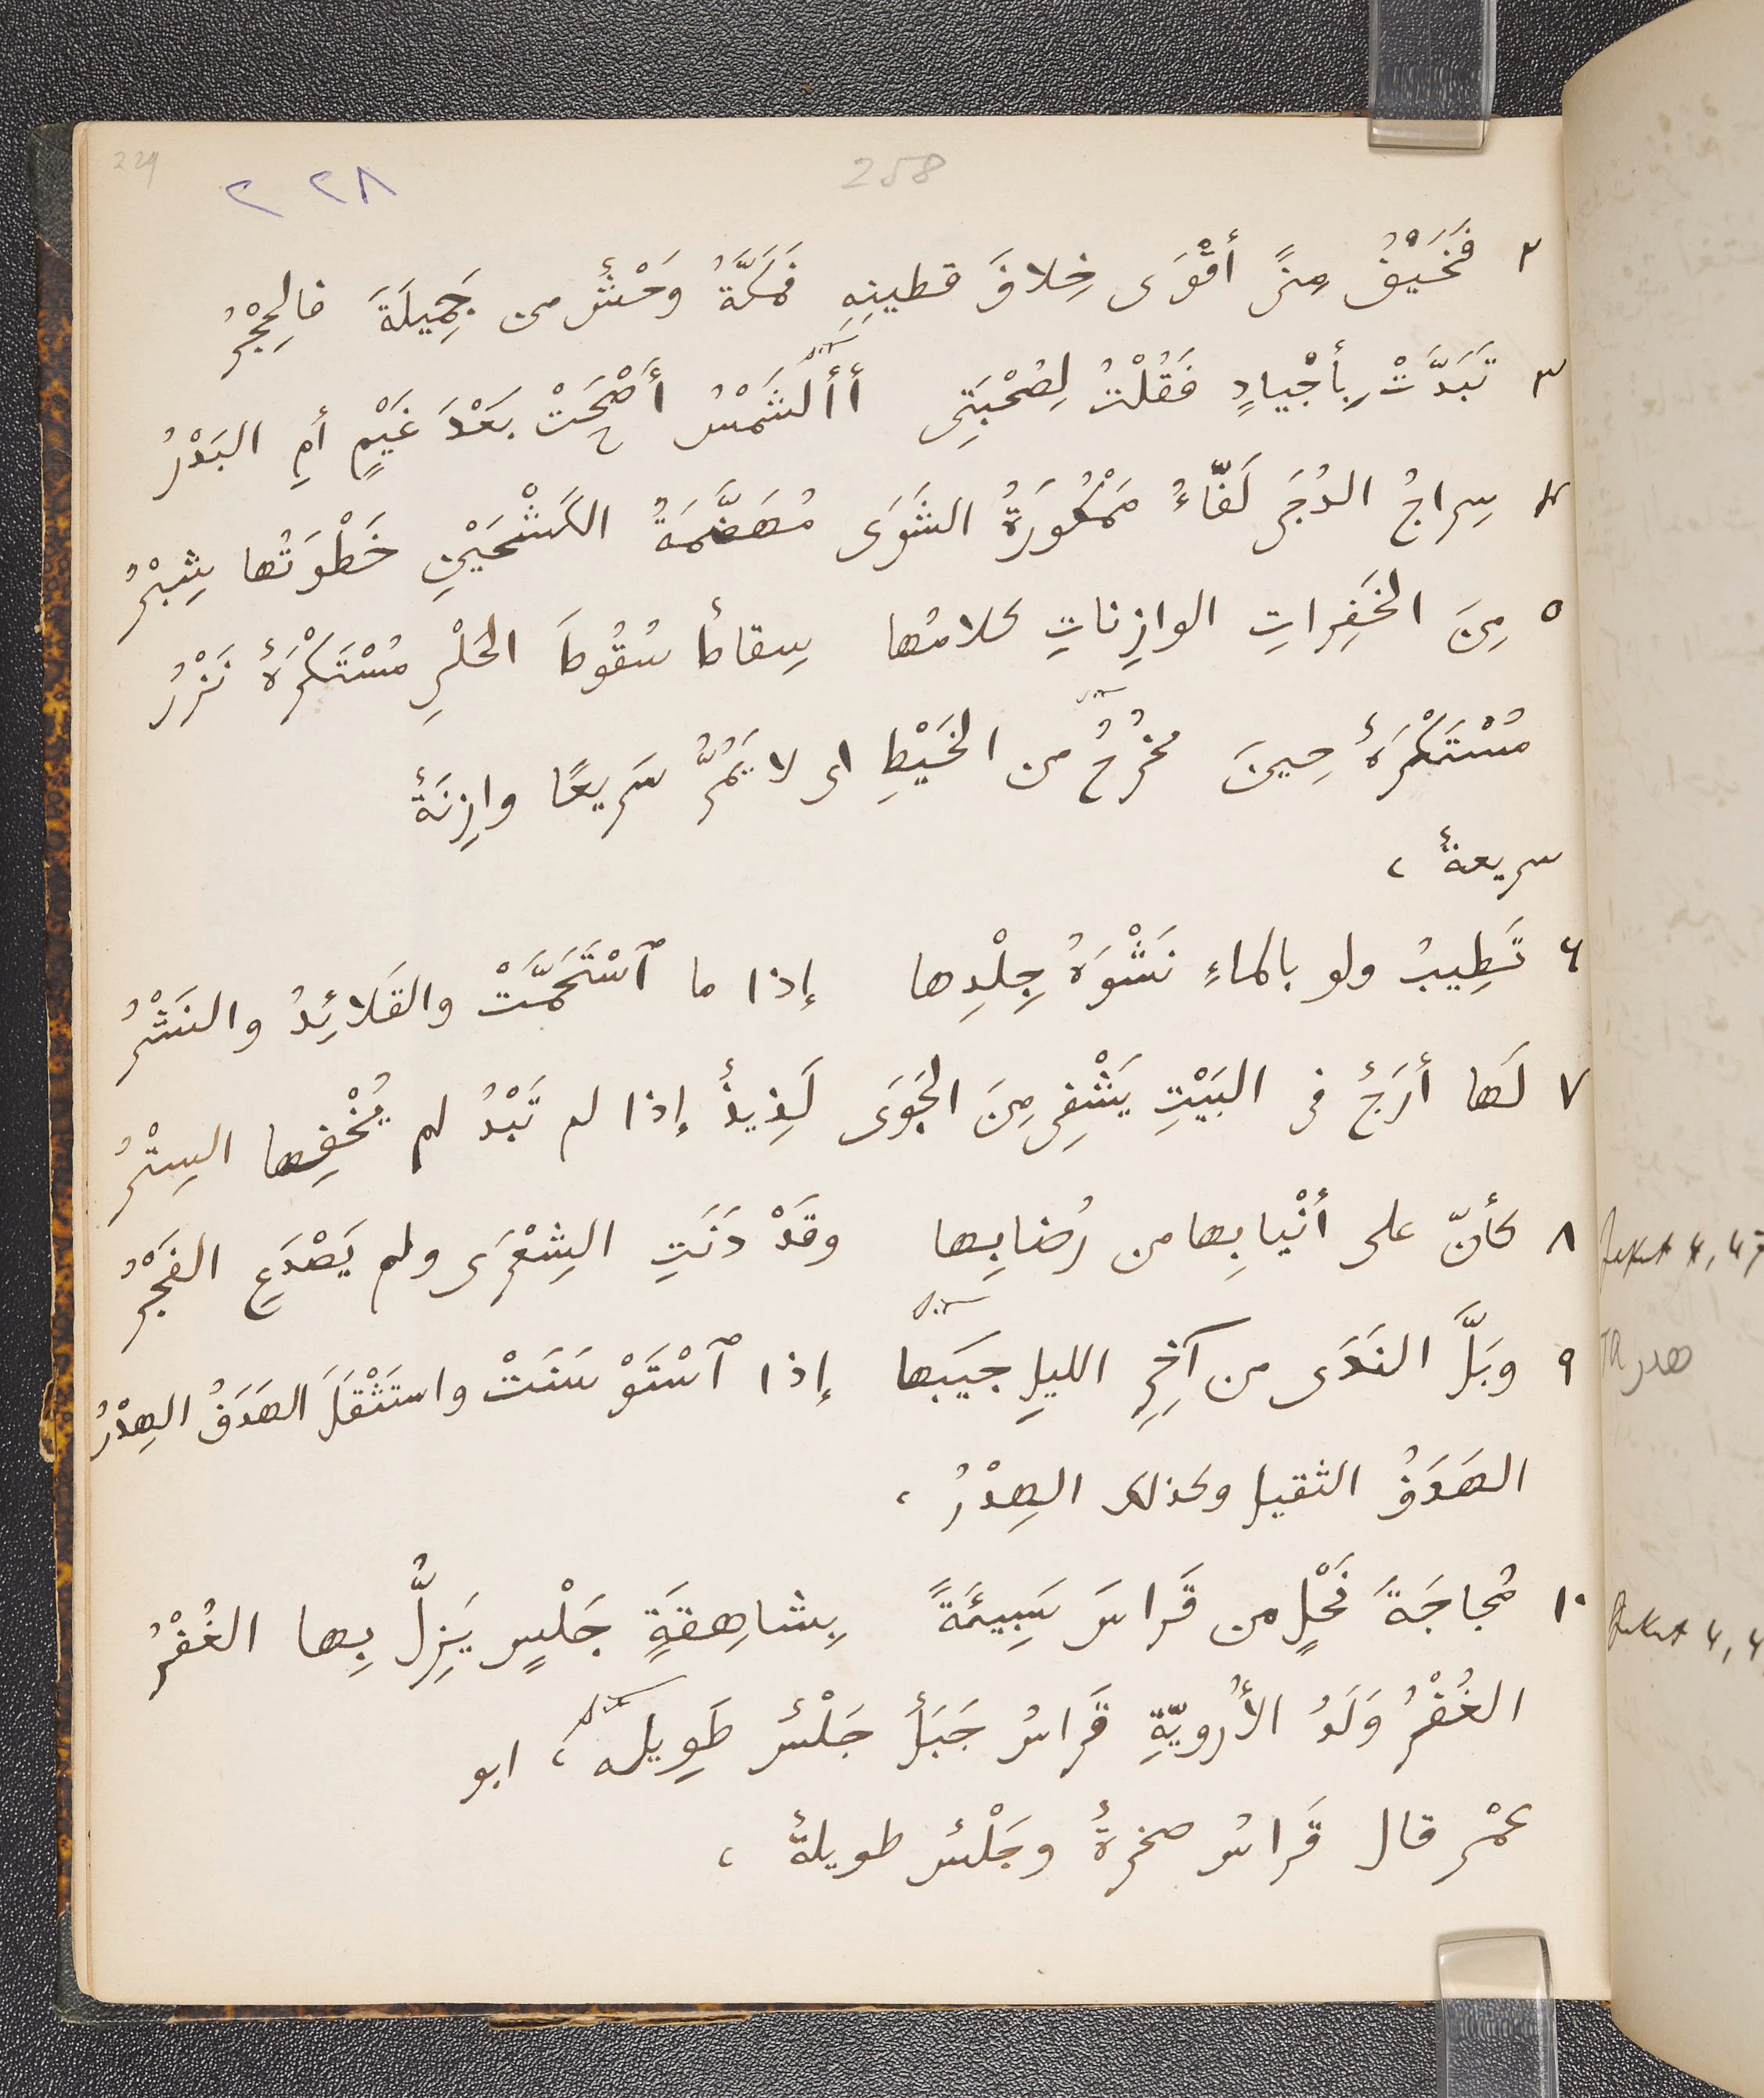 229
٢٢٨
258
٢ فَخَيْفُ مِنًى أَقْوَى خِلافَ قطينِهِ فَمَكَّةُ وَحْشٌ من جَمِيلَةَ فالحِجْرُ
٣ تَبَدَّتْ بِأَجْيادٍ فَقُلْتُ لِصُحْبَتِى أَأَلشَمْسُ أَضْحَتْ بَعْدَ غَيْمٍ أمِ البَدْرُ
٤ سِراجُ الدُجَى لَفّاءُ مَمْكُورَةُ الشَوَى مُهَضَّمَةُ الكَشْحَيْنِ خَطْوَتُها شِبْرُ
٥ مِنَ الخَفِراتِ الوازِناتِ كلامُها سِقاطٌ سُقُوطَ الحَلْىِ مُسْتَكْرَهٌ نَزْرُ
مُسْتَكْرَهٌ حِينَ يخْرُجُ من الخَيْطِ اى لا يَمُرُّ سَرِيعًا وازِنَةٌ
سريعةٌ ،
٦ تَطِيبُ ولو بالماءِ نَشْوَةُ جِلْدِها إذا ما ٱسْتَحَمَّتْ والقَلائِدُ والنَشْرُ
٧ لَها أَرَجٌ فى البَيْتِ يَشْفِى مِنَ الجَوَى لَذِيذٌ إذا لم تَبْدُ لم يُخْفِها السِتْرُ
٨ كأنّ على أنْيابِها من رُضابِها وقَدْ دَنَتِ الشِعْرَى ولم يَصْدَعِ الفَجْرُ
٩ وبَلَّ النَدَى من آخِرِ الليلِ جيبَها إذا ٱسْتَوْسَنَتْ واستَثْقَلَ الهَدَفُ الهِدْرُ
الهَدَفُ الثقيل وكذلك الهِدْرُ ،
١٠ مُجاجَةَ نَحْلٍ من قَراسَ سَبِيئَةً بِشاهِقَةٍ جَلْسٍ يَزِلُّ بِها الغُفْرُ
الغُفْرُ وَلَدُ الأُرويّةِ قَراسُ جَبَلٌ جَلْسٌ طَوِيلة ، ابو
عمْر قال قَراسُ صخرةٌ وجَلْسٌ طويلةٌ ،
هدر TA